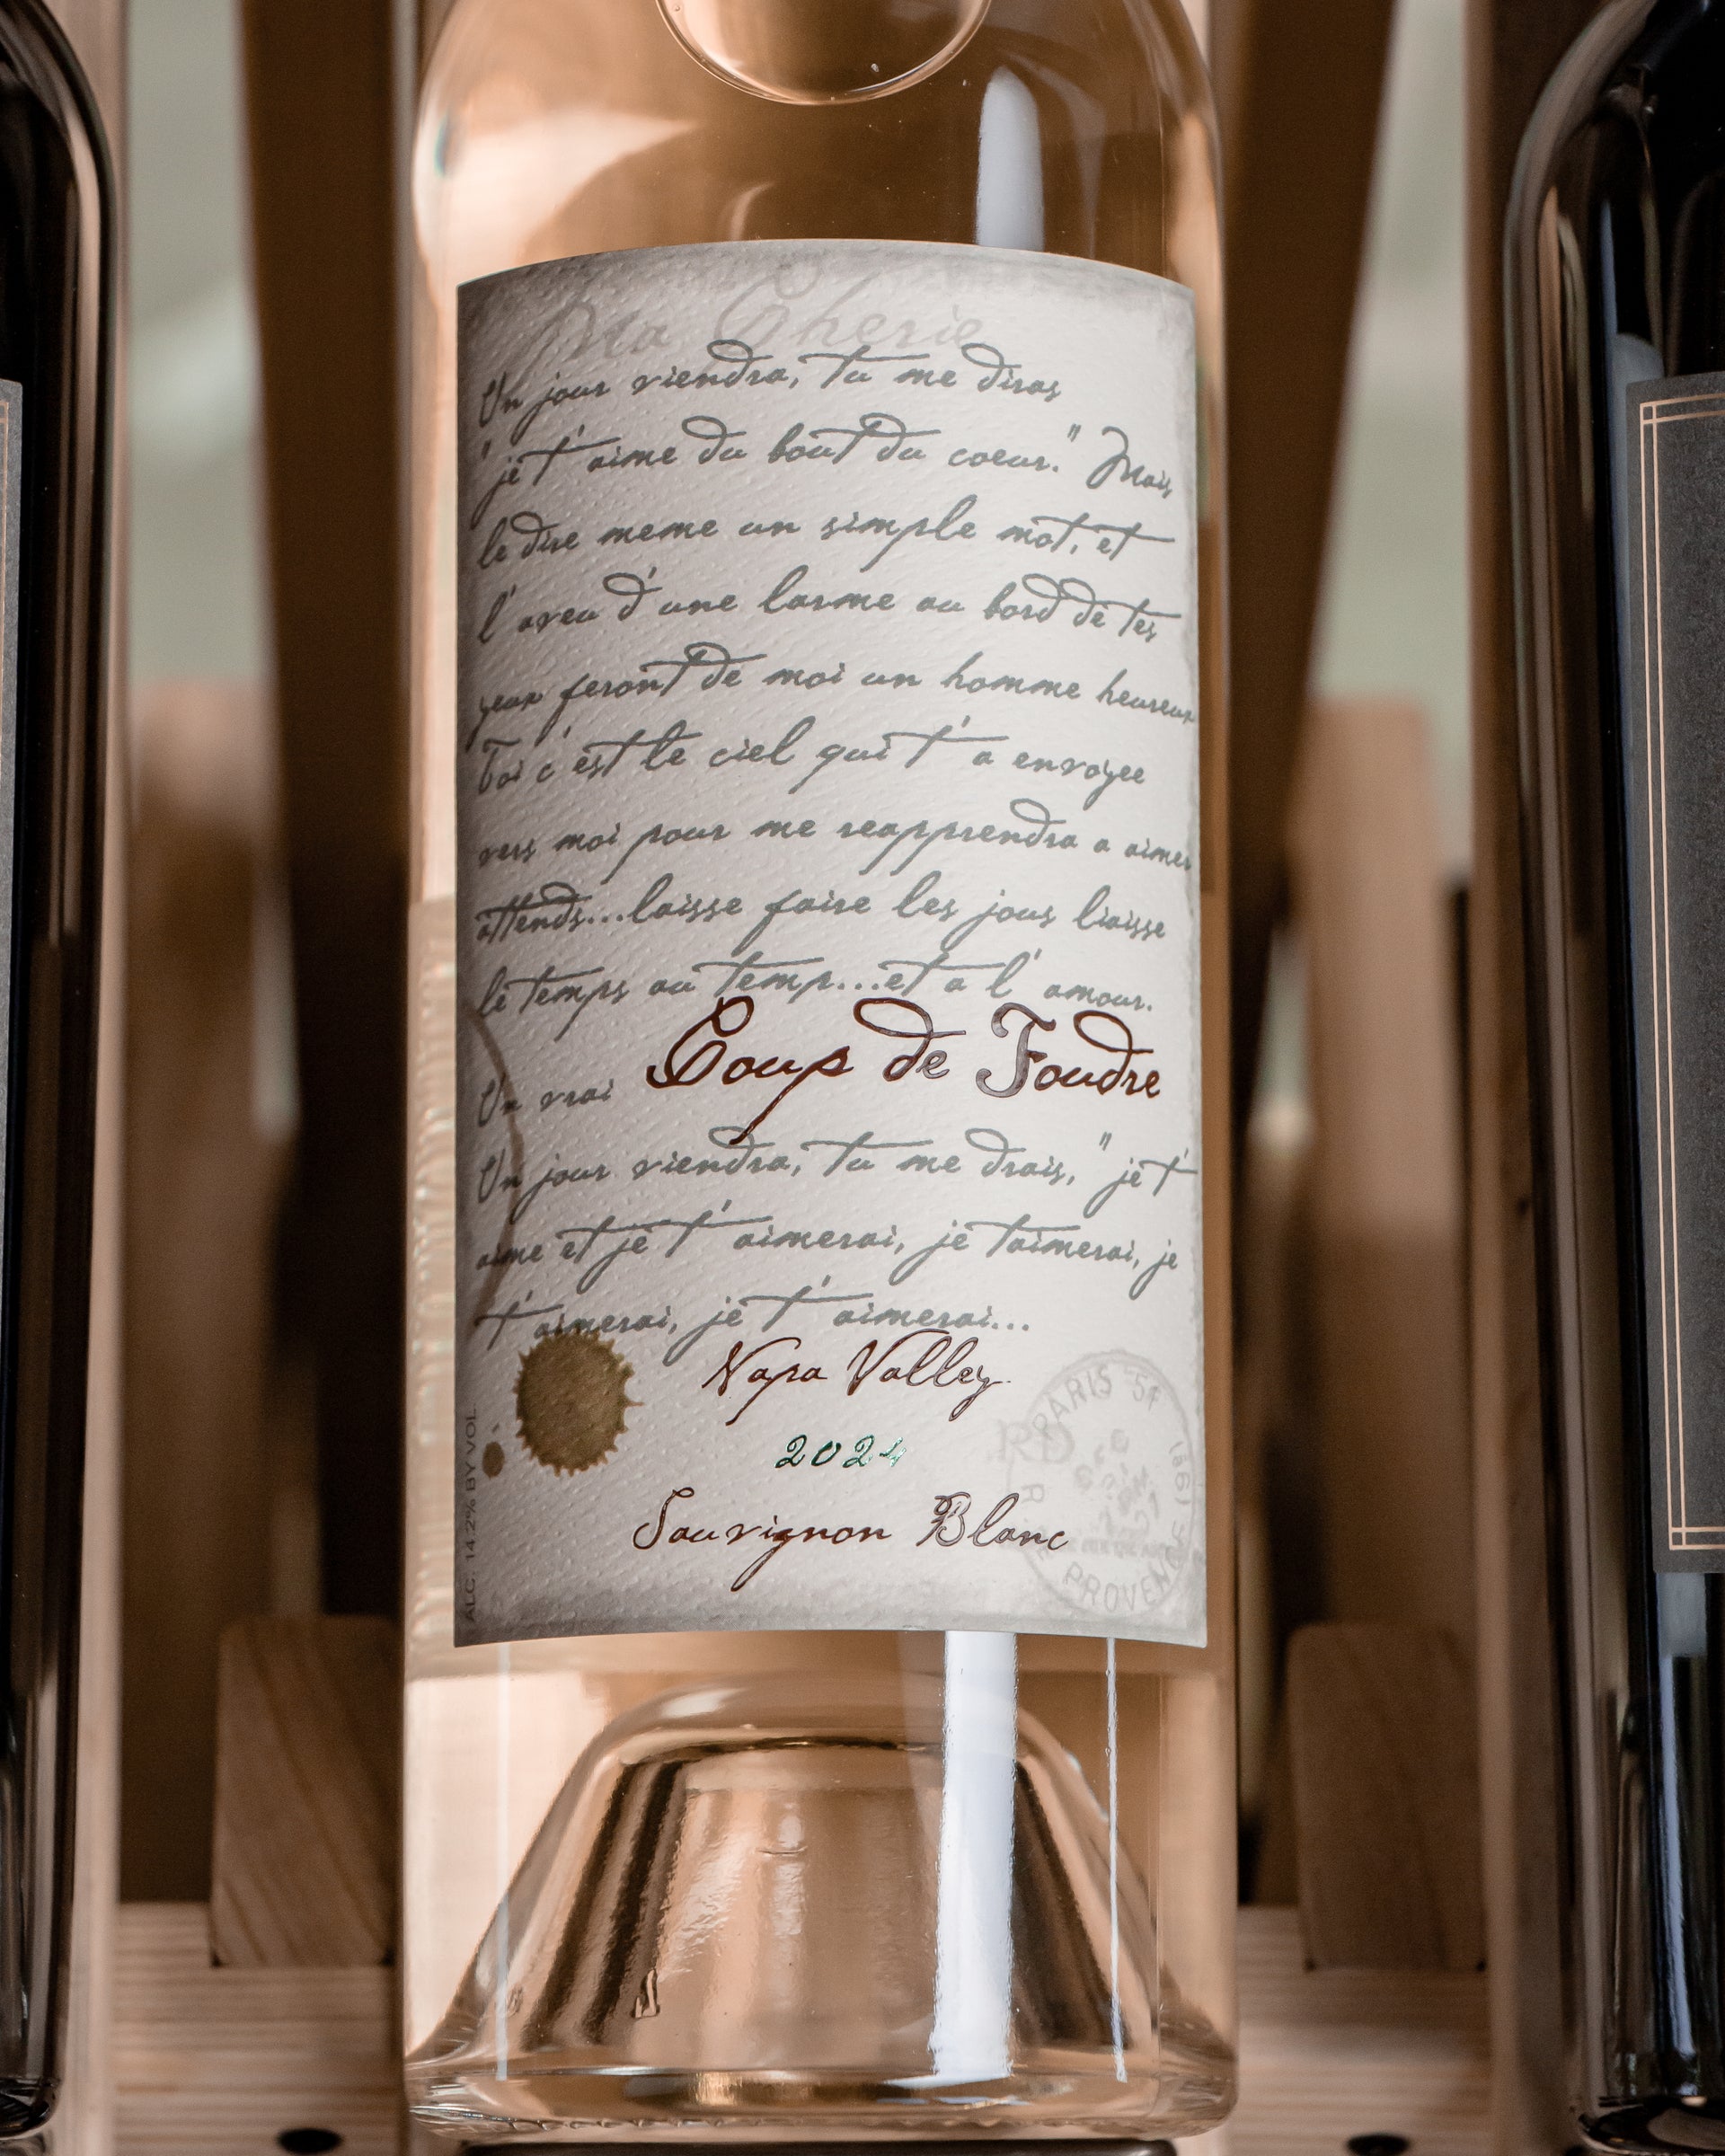 Ma Cherie
Un jour viendra, tu me diras
"je t'aime du bout du coeur." Mais
le dire meme un simple mot, et
l'aveu d'une larme au bord de tes
yeux feront de moi un homme heureux
Toi c'est le ciel qui t'a envoyee
vers moi pour me reapprendra a aimer
attends...laisse faire les jous liaisse
le temps au temp...et a l'amour.
Un vrai Coup de Foudre
Un jour viendra, tu me drais, "je t'
aime et je t'aimerai, je taimerai, je
t'aimerai, je t'aimerai...
Napa Valley
2024
Sauvignon Blanc
ALC. 14.2% BY VOL
PARIS
PROVEN